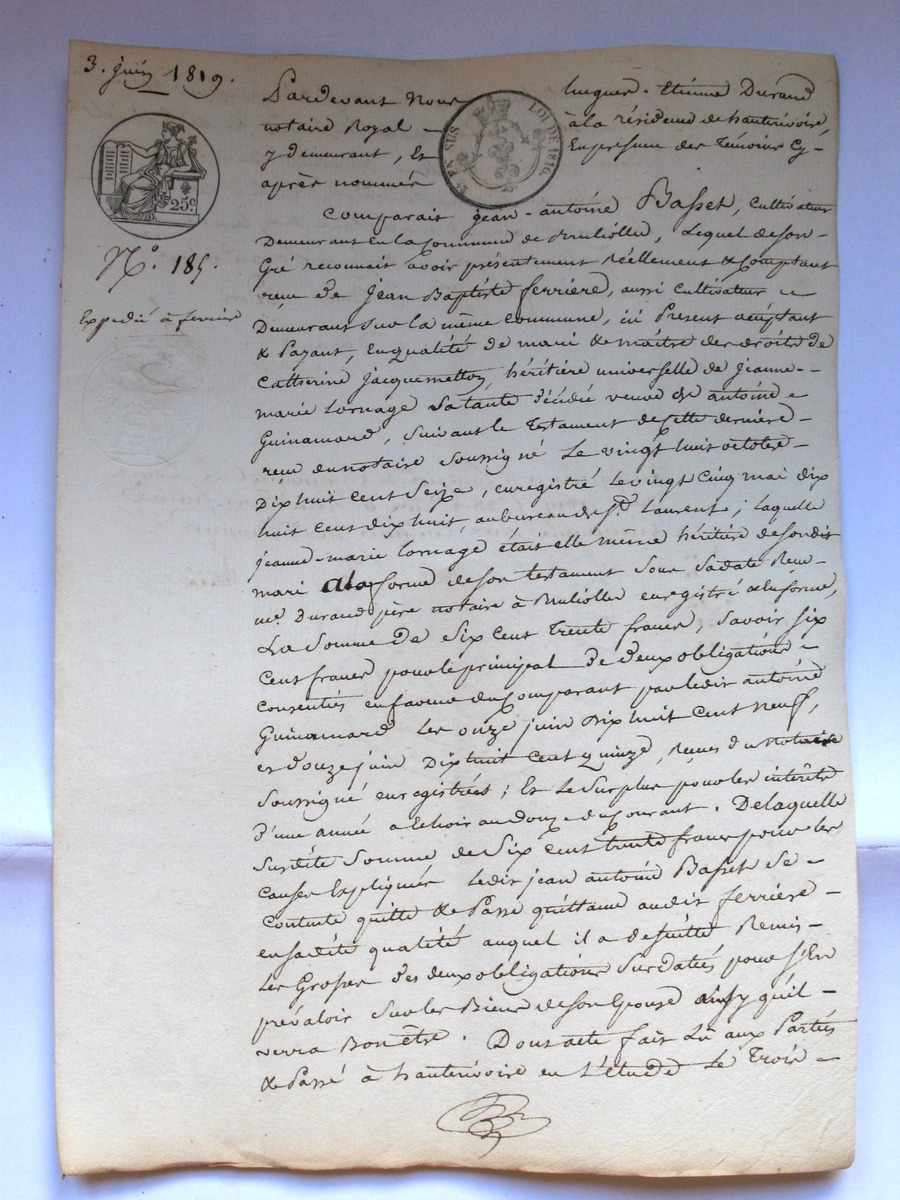 3. juin 1819.
25c
N.° 185.
Expédié à ferriere
EN SUS
LOI DE 1816.
Pardevant Nous hugues-Etienne Durand
notaire Royal à la résidence de hauterivoire,
y demeurant, Et En présence des témoins Cy-
après nommés
Comparait jean-antoine Basset, Cultivateur
Demeurant En la Commune de Brullolles, Lequel de son
Gré reconnait avoir présentement Réellement & Comptant
reçu De jean Baptiste ferriere, aussi Cultivateur
Demeurant sur la même Commune, ici Présent acceptant
& Payant, en qualité de mari & maître des droits de
Catherine jacquemetton, héritière universelle de jeanne-
marie Lornage Sa tante Décédée veuve de antoine
Guinamard, Suivant Le Testament de Cette dernière
reçu du notaire Soussigné Le vingt huit octobre
Dix huit cent Seize, enregistré Le vingt Cinq mai dix
huit cent dix huit, au bureau de St Laurent; laquelle
jeanne-marie Lornage était elle même héritière de Son dit
mari a la forme de Son testament Sous Sa date Reçu
me Durand père notaire à Brullolles enregistré a la forme,
La Somme De Six Cent Trente francs, Savoir Six
Cent francs pour le principal De deux obligations
Consenties en faveur du Comparant par ledit antoine
Guinamard Les onze juin Dix huit Cent neuf,
et Douze juin Dix huit Cent quinze, Reçues du notaire
Soussigné enregistrées; Et Le Surplus pour les intérêts
D'une année a echoir au douze du Courant. De laquelle
Susdite Somme de Six Cent trente francs pour les
Causes Expliquées Ledit jean antoine Basset Se
Contente quitte & Passe quittance audit ferriere
en Sadite qualité auquel il a de suite Remis
Les Grosses Des deux obligations Surdatées pour S'En
prévaloir Sur les Biens de Son Epouse ainsy qu'il
verra Bon être. Dont acte fait Lû aux Parties
& Passé à hauterivoire en L'étude Le Trois